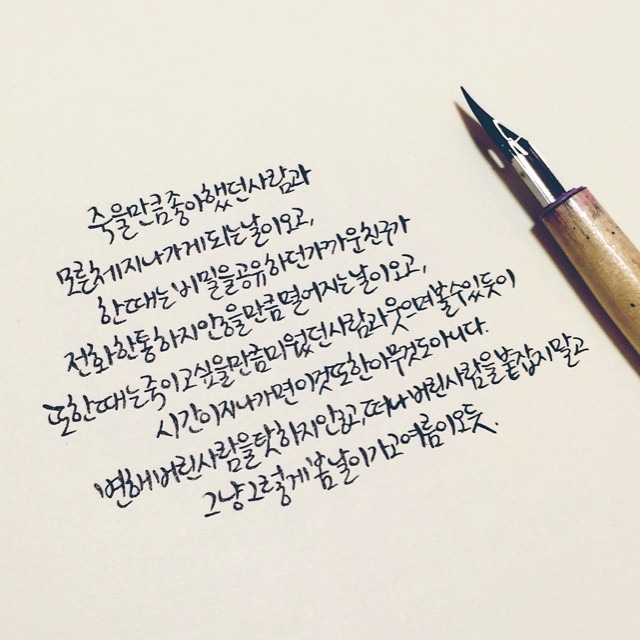 죽을만큼좋아했던사람과
모른체지나가게되는날이오고,
한때는비밀을공유하던가까운친구가
전화한통하지않을만큼멀어지는날이오고,
또한때는죽이고싶을만큼미웠던사람과웃으며볼수있듯이
시간이지나가면이것또한아무것도아니다.
'변해'버린사람을탓하지않고,떠나버린사람을붙잡지말고
그냥그렇게'봄날이가고여름이오듯.